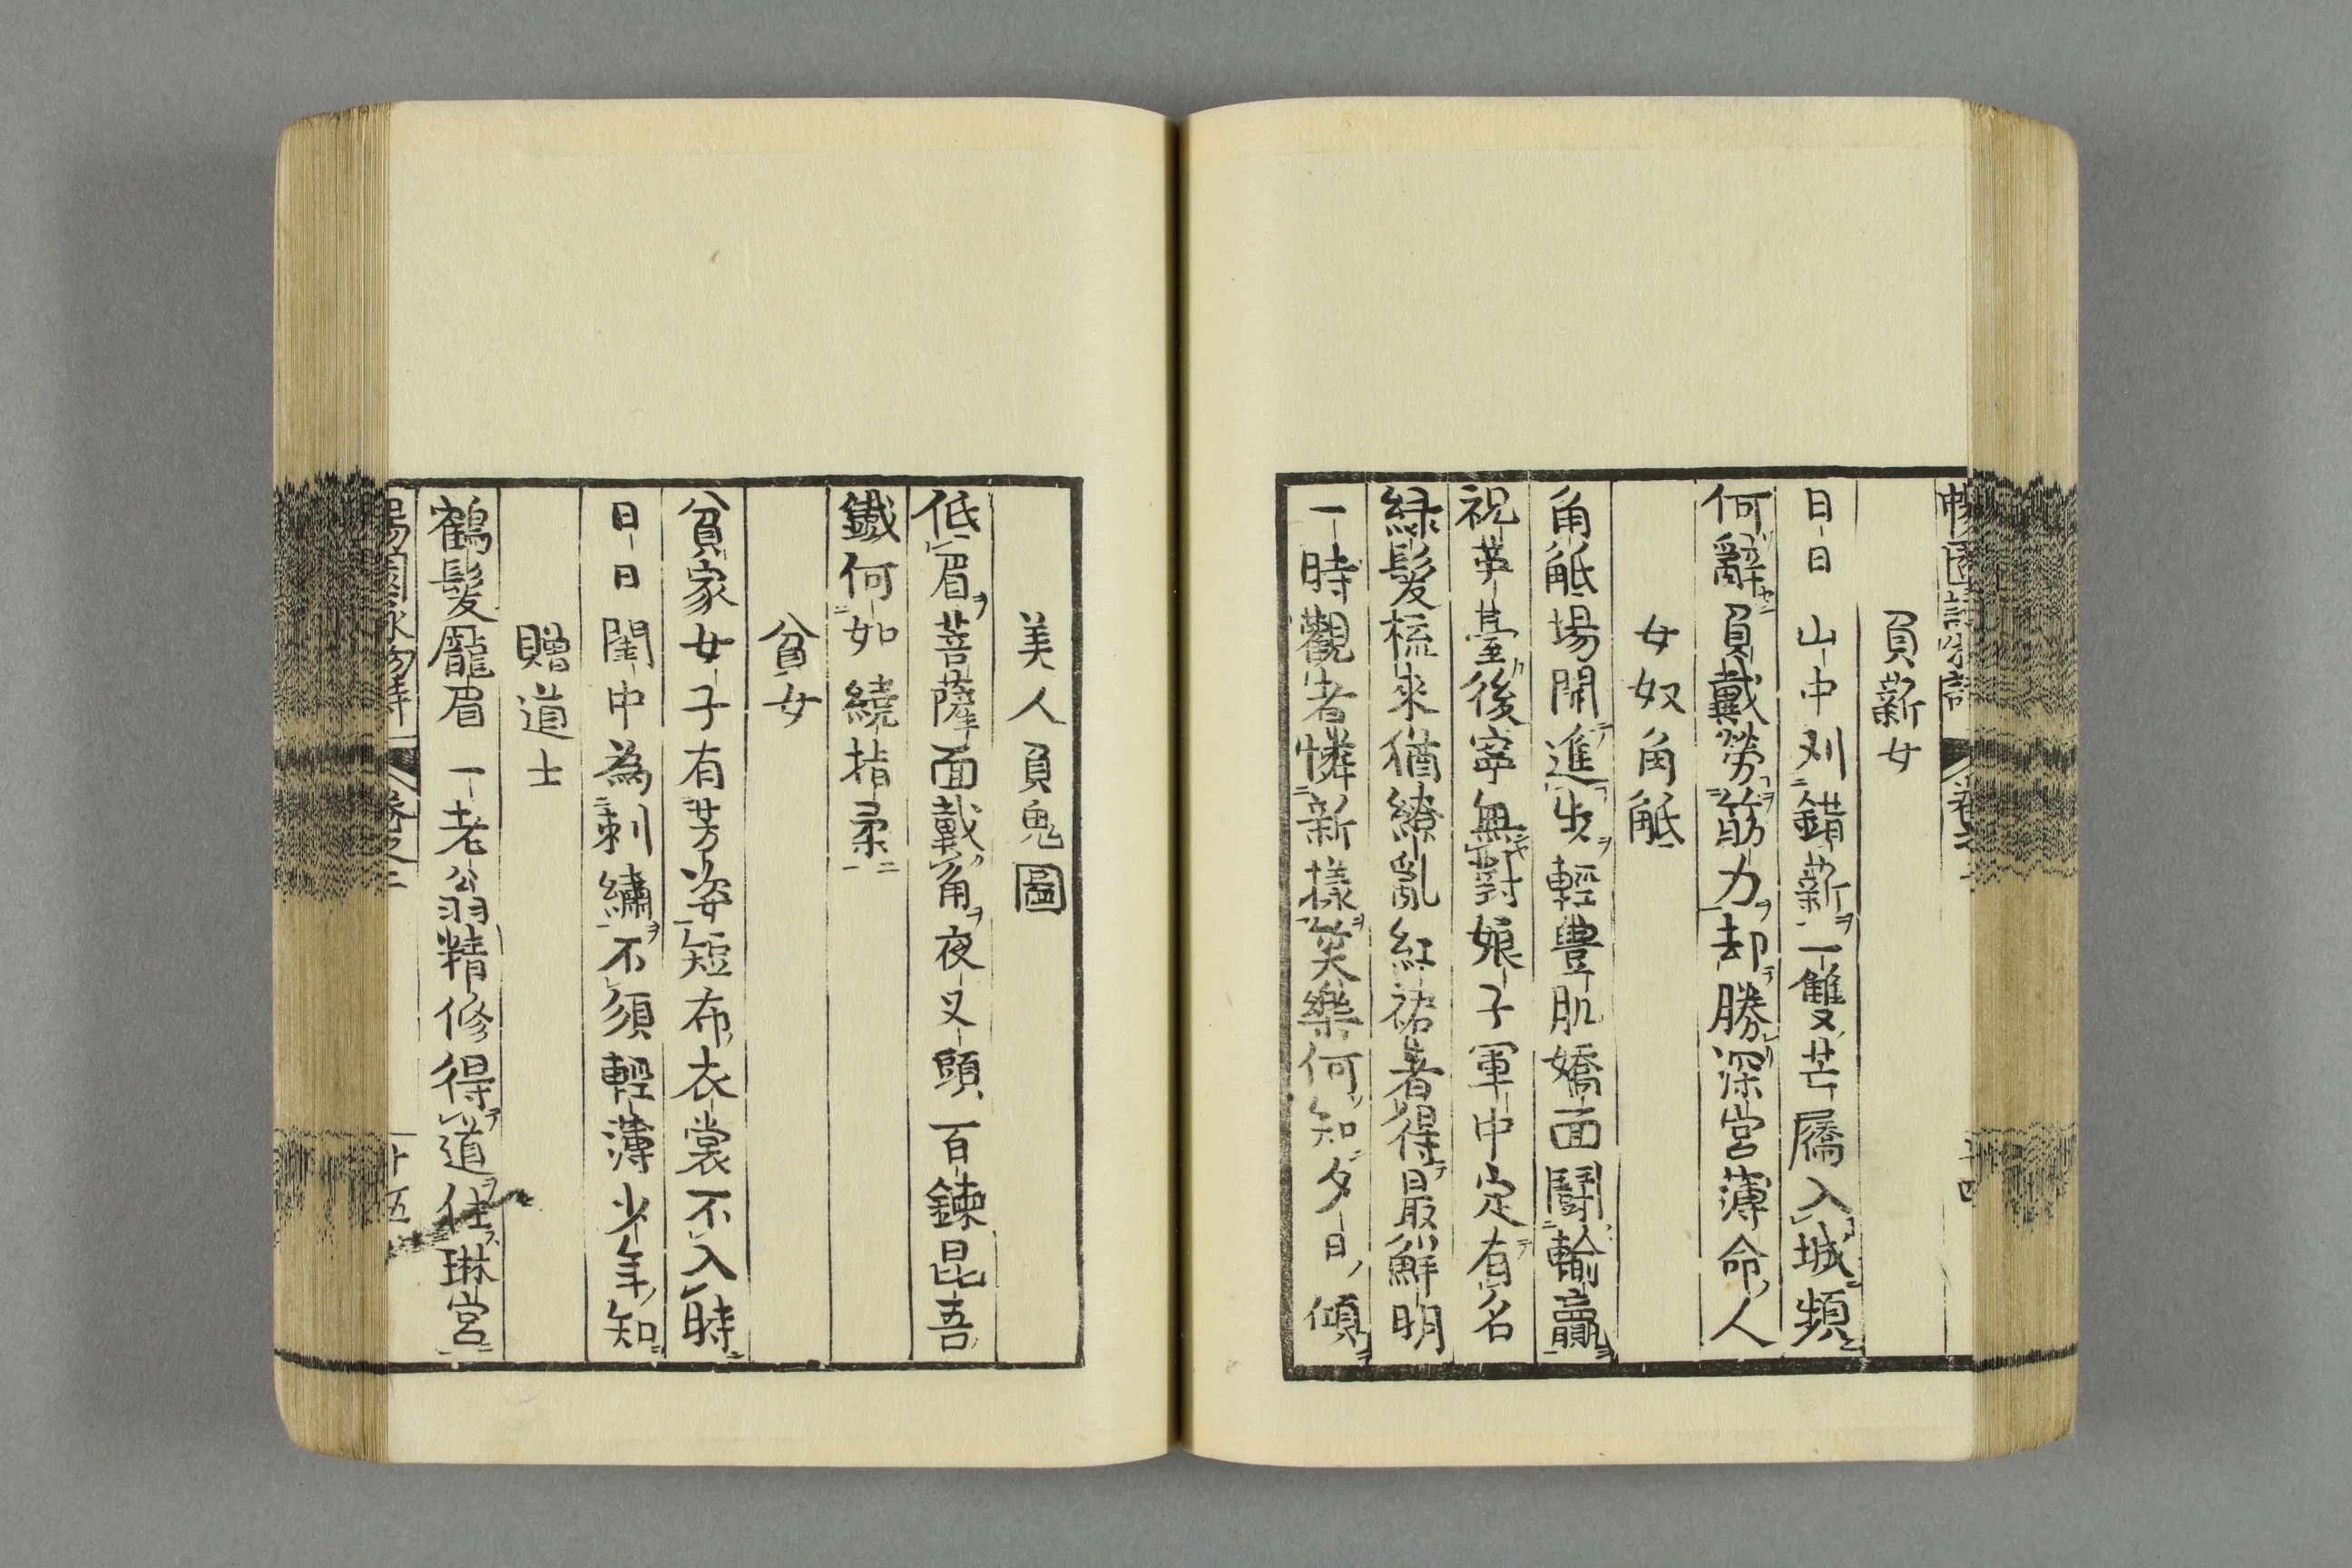 負薪女
日日山中刈錯薪一雙芒屩入城頻
何辭負戴勞筋力却勝深宮薄命人
女奴角觝
角觝場開進步輕豊肌嬌面鬪輸贏
祝英臺後寧無對娘子軍中定有名
緑髮梳來猶繚亂紅裙著得最鮮明
一時觀者憐新樣笑樂何知夕日傾
美人負鬼圖
低眉菩薩面戴角夜叉頭百鍊昆吾
鐵何如繞指柔
貧女
貧家女子有芳姿短布衣裳不入時
日日閨中為刺繡不須輕薄少年知
贈道士
鶴髮龎眉一老翁精修得道住琳宮
卷之二
十五